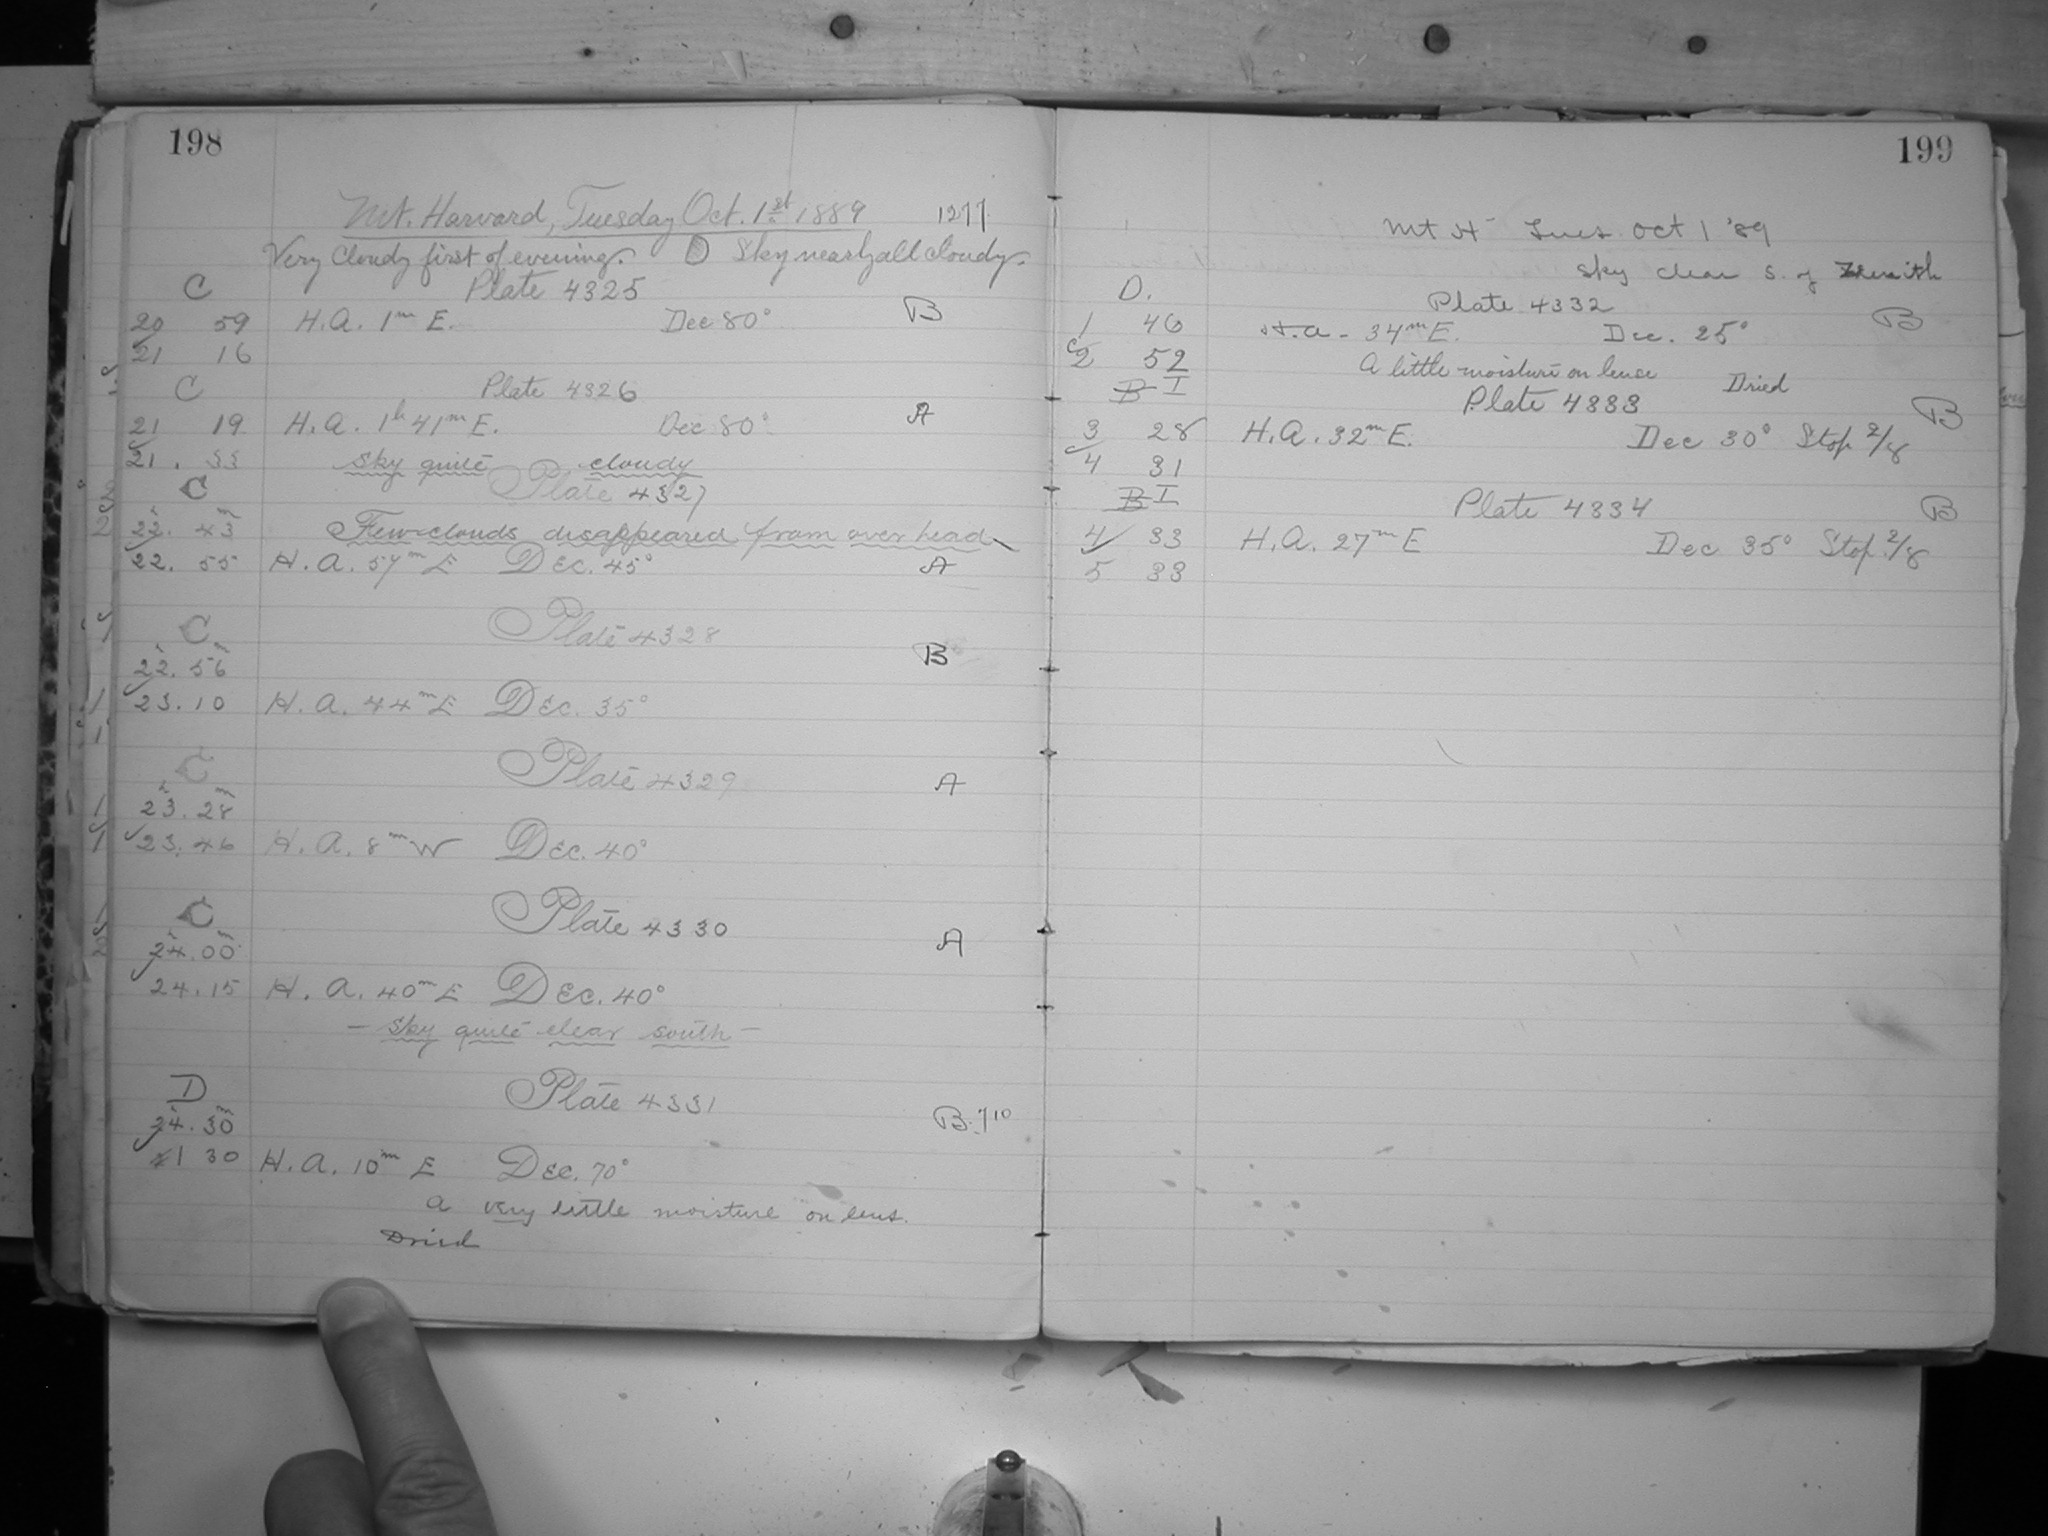 198
Mt. Harvard, Tuesday Oct. 1st 1889 1277
Very Cloudy first of evening. Sky nearly all cloudy.
C Plate 4325
20 59 H.A. 1m E. Dec 80° B
21 16
C Plate 4326
21 19 H.A. 1h 41m E. Dec 80° A
21. 33 Sky quite cloudy
C Plate 4327
22h. 43m Few clouds disappeared from over head
22. 55 H.A. 57m E Dec. 45° A
C Plate 4328
22h. 56m B
23. 10 H.A. 44m E Dec. 35°
C Plate 4329
23h. 28m A
23. 46 H.A. 8m W Dec. 40°
C Plate 4330
24h. 00m A
24. 15 H.A. 40m E Dec. 40°
— Sky quite clear south —
D Plate 4331
24h. 30m B. 710
1 30 H.A. 10m E Dec. 70°
a very little moisture on lens.
Dried
199
Mt H Tues. Oct 1 '89
Sky clear S. of Zenith
D. Plate 4332
1 46 H.A. 34m E. Dec. 25° B
2 52 A little moisture on lense Dried
B I Plate 4333
3 28 H.A. 32m E. Dec 30° Stop 2/8 B
4 31
B I Plate 4334 B
4 33 H.A. 27m E Dec 35° Stop 2/8
5 33